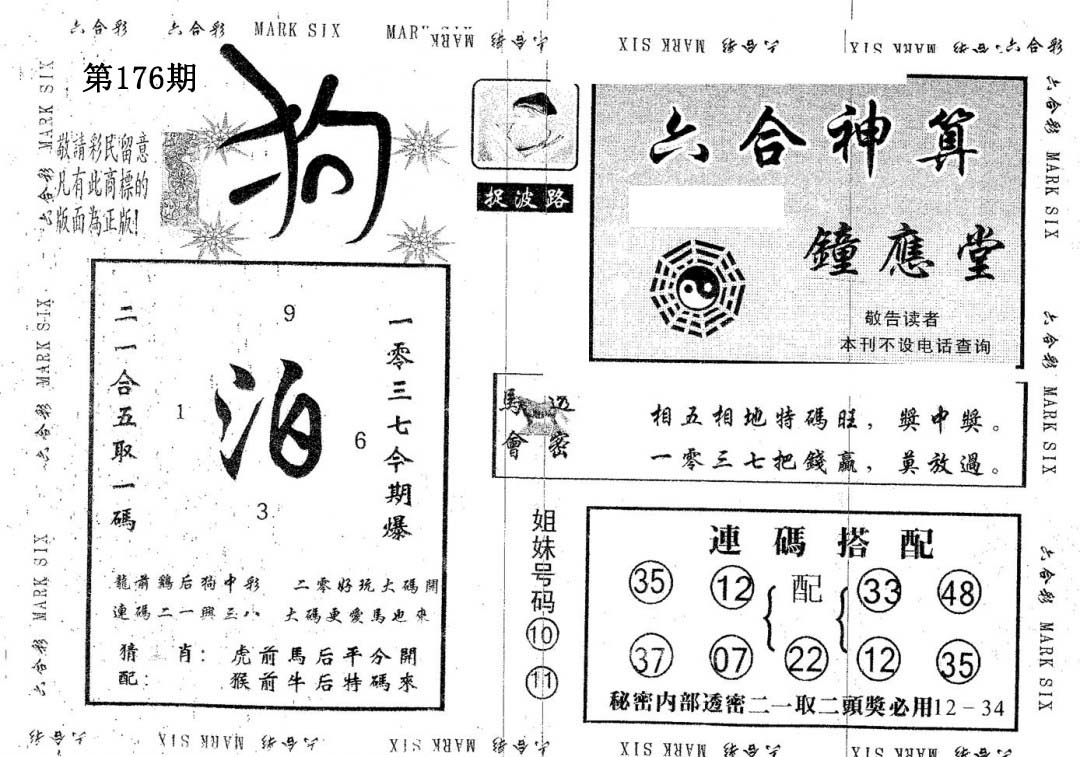 六合彩 六合彩 MARK SIX MARK MARK SIX 六合彩
MARK SIX 六合彩 MARK SIX 六合彩 六合彩
第176期
狗
敬請彩民留意
凡有此商標的
版面為正版!
捉波路
六合神算
鐘應堂
敬告读者
本刊不设电话查询
二一合五取一碼
9
1
泊
6
3
一零三七今期爆
龍前鷄后狗中彩 二零好玩大碼開
連碼二一興三八 大碼更愛馬也來
猜三肖: 虎前馬后平分開
配: 猴前牛后特碼來
馬會透密
相五相地特碼旺,獎中獎。
一零三七把錢贏,莫放過。
姐妹号码
10
11
連碼搭配
35 12 配 33 48
37 07 22 12 35
秘密内部透密二一取二頭獎必用12-34
六合彩 MARK SIX 六合彩 MARK SIX 六合彩 MARK SIX
六合彩 MARK SIX 六合彩 MARK SIX 六合彩 MARK SIX
六合彩 MARK SIX 六合彩 MARK SIX 六合彩
MARK SIX 六合彩 MARK SIX 六合彩